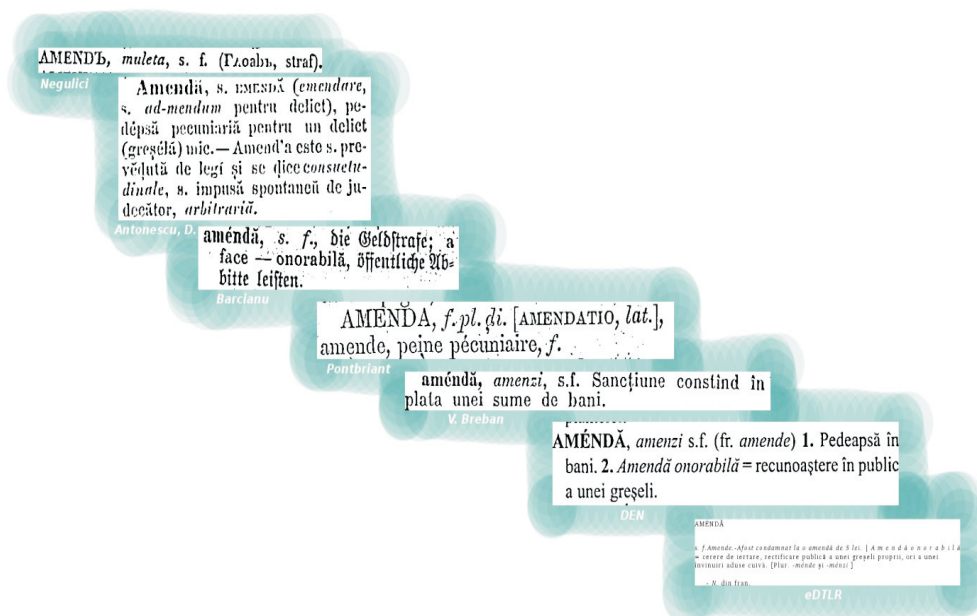 AMENDЪ, muleta, s. f. (Гʌоабъ, straf).
Negulici
Amendă, s. EMENDĂ (emendare,
s. ad-mendum pentru delict), pe-
dépsă pecuniariă pentru un delict
(greșélă) mic.—Amend'a este s. pre-
vĕdută de legí și se dice consuetu-
dinale, s. impusă spontaneŭ de ju-
decător, arbitrariă.
Antonescu, D.
améndă, s. f., die Geldstrafe; a
face — onorabilă, öffentliche Ab-
bitte leisten.
Barcianu
AMENDA, f. pl. di. [AMENDATIO, lat.],
amende, peine pécuniaire, f.
Pontbriant
améndă, amenzi, s.f. Sancțiune constînd în
plata unei sume de bani.
V. Breban
AMÉNDĂ, amenzi s.f. (fr. amende) 1. Pedeapsă în
bani. 2. Amendă onorabilă = recunoaștere în public
a unei greșeli.
DEN
AMÉNDĂ
s. f. Amende.-Afost condamnat la o amendă de 5 lei. | Amendă onorabilă
= cerere de iertare, rectificare publică a unei greșeli proprii, ori a unei
învinuiri aduse cuivă. [Plur. -ménde și -ménzi ]
- N. din fran.
eDTLR